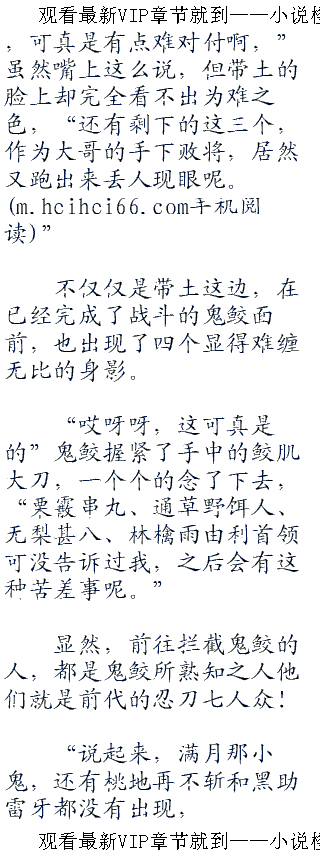 观看最新VIP章节就到——小说检
，可真是有点难对付啊，”
虽然嘴上这么说，但带土的
脸上却完全看不出为难之
色，“还有剩下的这三个，
作为大哥的手下败将，居然
又跑出来丢人现眼呢。
(m.hcihci66.com手机阅
读)”
不仅仅是带土这边，在
已经完成了战斗的鬼鲛面
前，也出现了四个显得难缠
无比的身影。
“哎呀呀，这可真是
的”鬼鲛握紧了手中的鲛肌
大刀，一个个的念了下去，
“栗霰串丸、通草野饵人、
无梨甚八、林檎雨由利首领
可没告诉过我，之后会有这
种苦差事呢。”
显然，前往拦截鬼鲛的
人，都是鬼鲛所熟知之人他
们就是前代的忍刀七人众！
“说起来，满月那小
鬼，还有桃地再不斩和黑助
雷牙都没有出现，
观看最新VIP章节就到——小说检